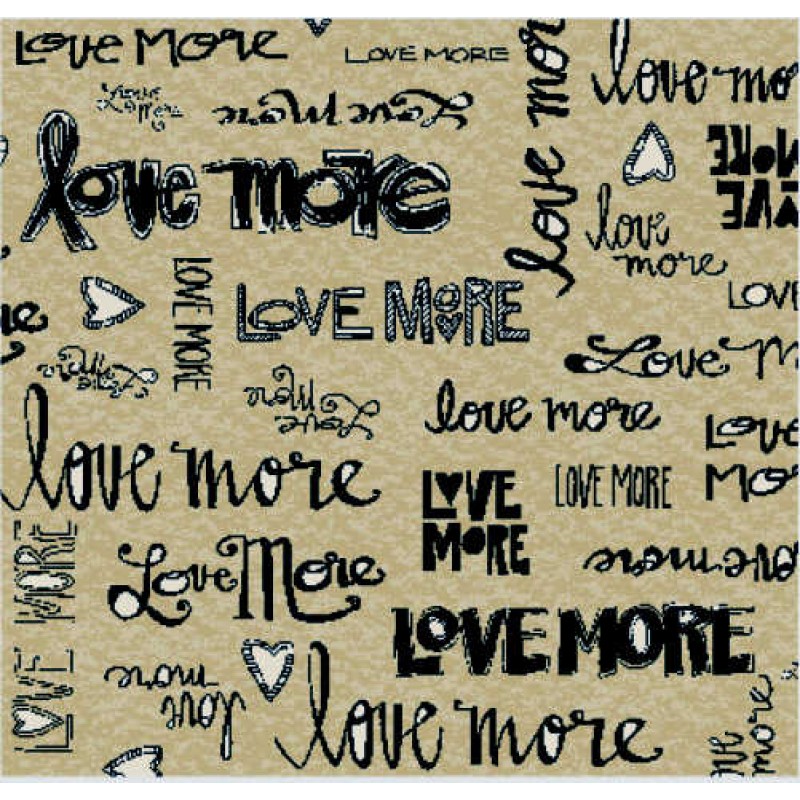 Love More
LOVE MORE
love more
love mo
Love
More
Love More
MORE
LOVE
love more
love
more
LOVE MORE
LOVE
LOVE MORE
Love M
Love More
Love
More
love more
Love
Mo
love more
LOVE
MORE
LOVE MORE
LOVE MORE
Love More
ove more
LOVE MORE
LOVE MORE
love
more
love more
more